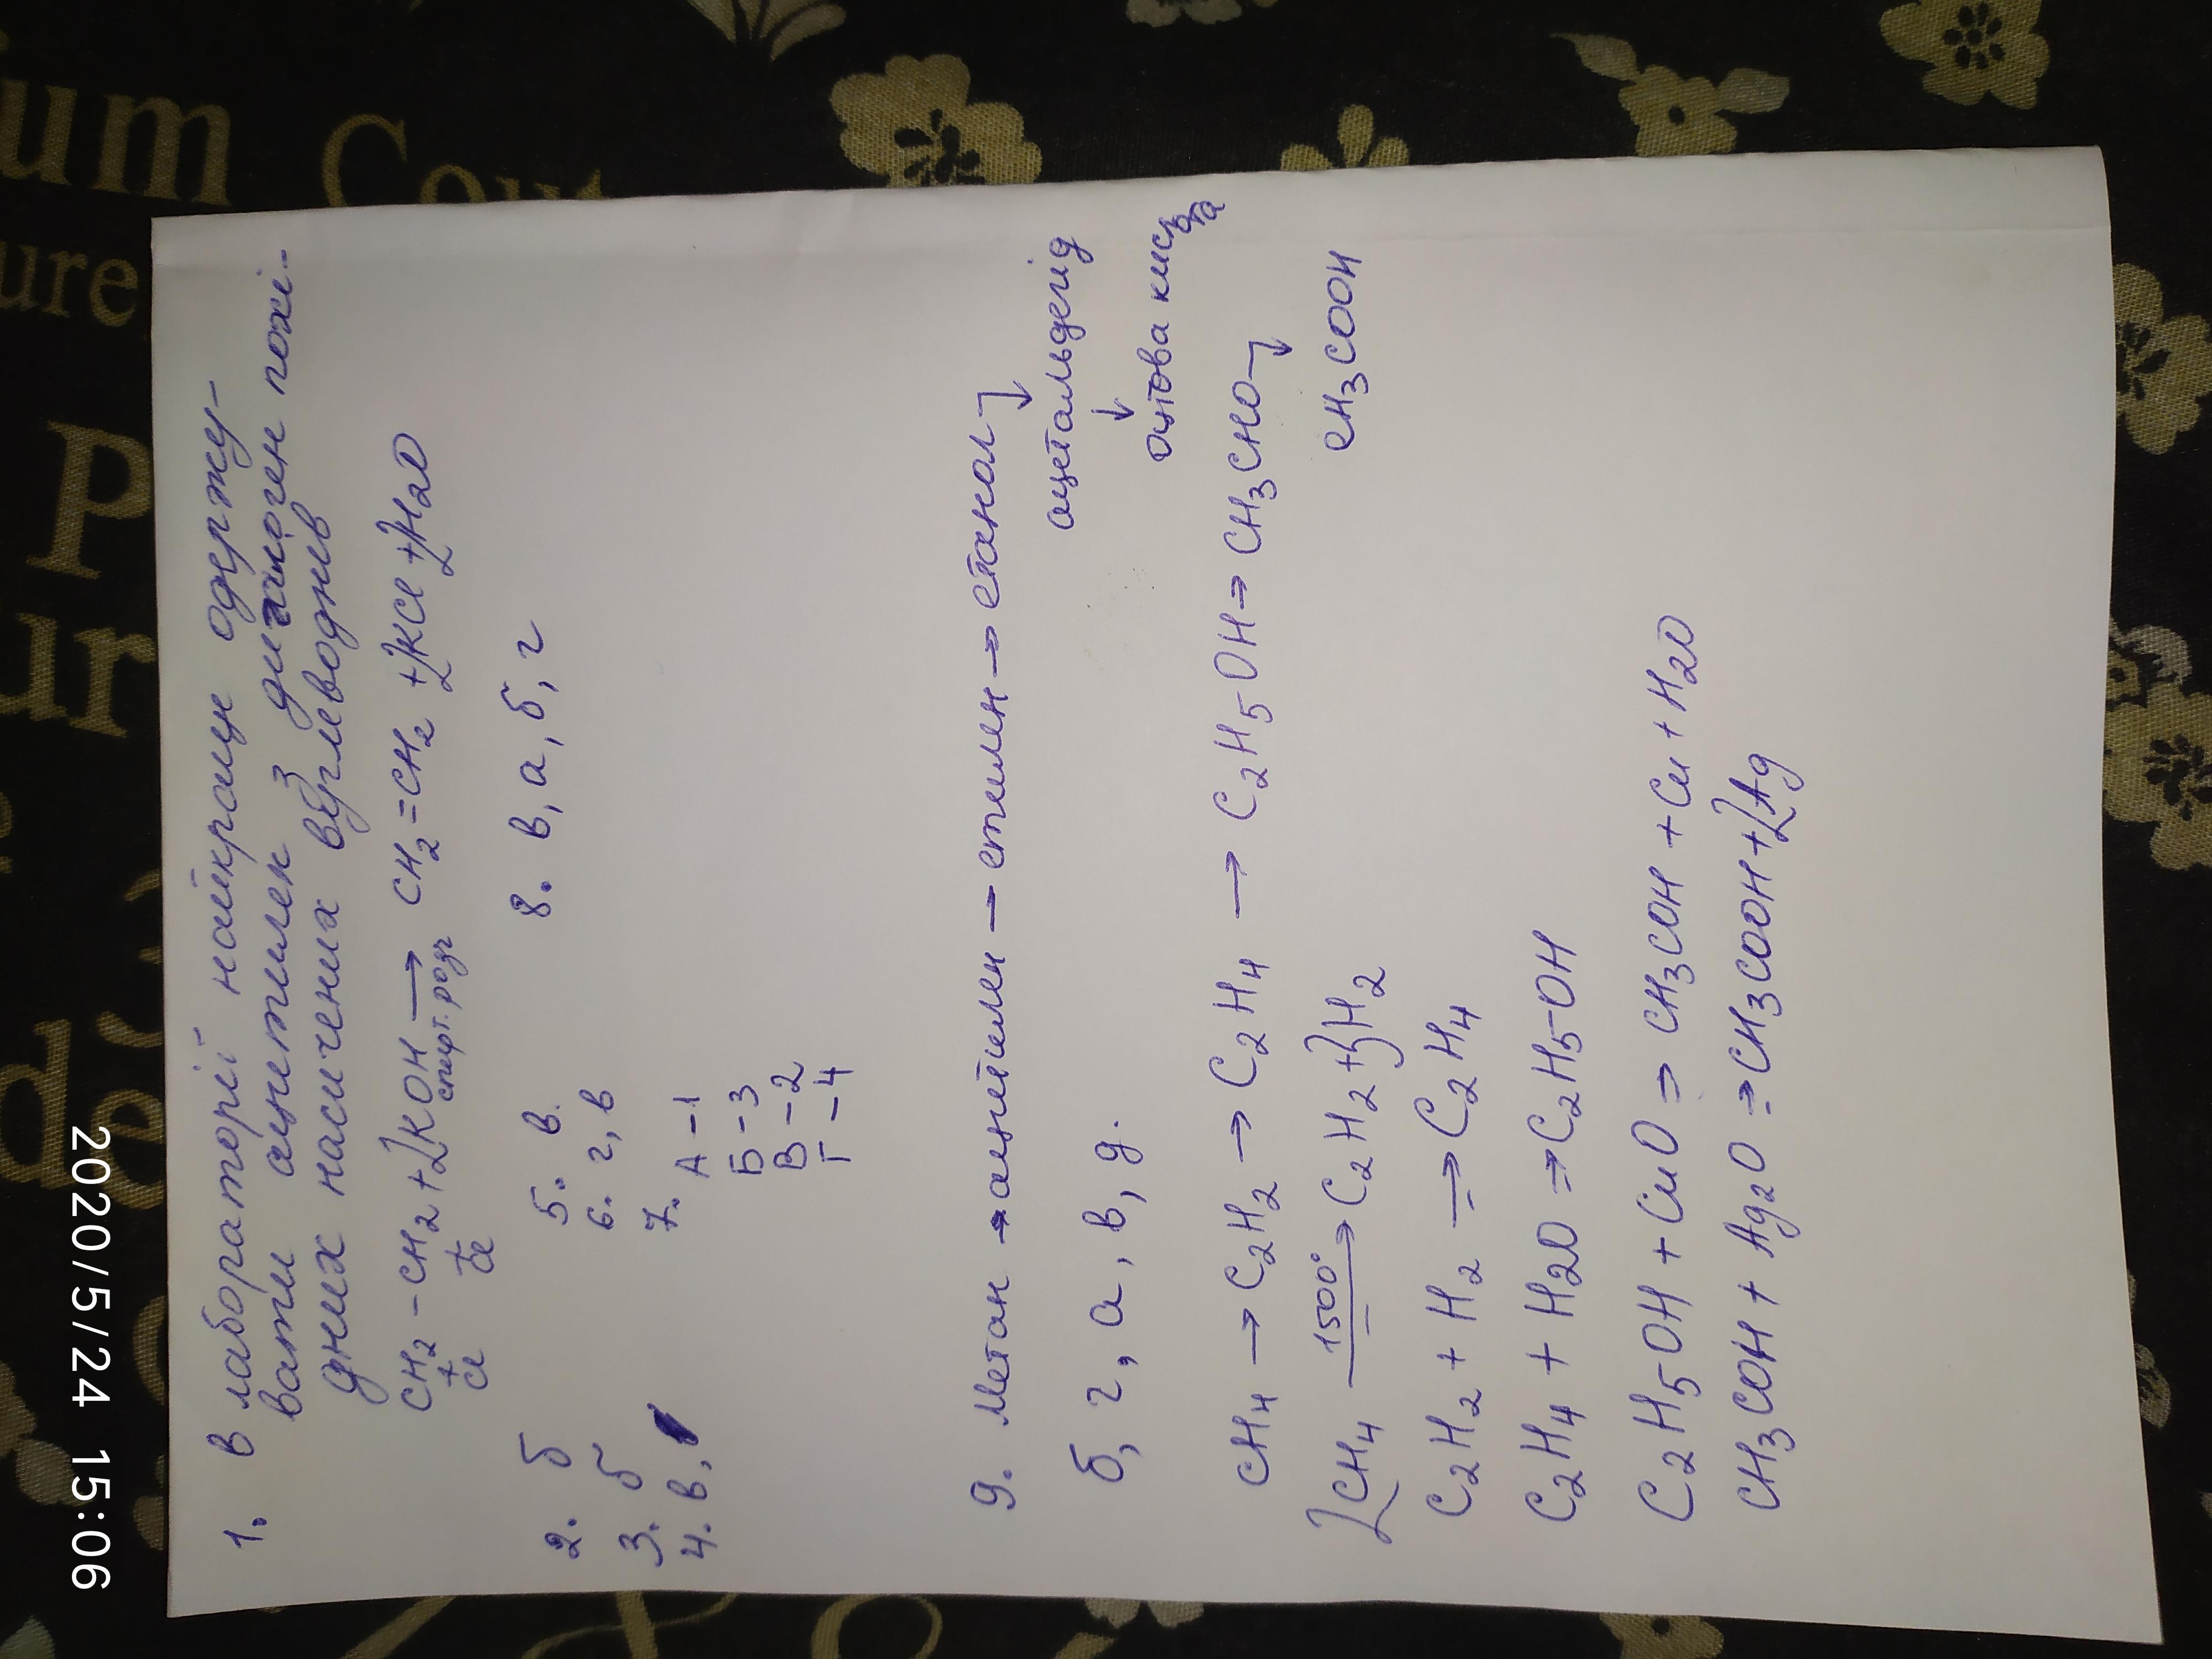 1. В лабораторії найкраще одержу-
вати ацетилен з дигалоген похі-
дних насичених вуглеводнів
CH2 - CH2 + 2KOH → CH2 = CH2 + 2KCl + 2H2O
Cl Cl спирт. розч
2. б
3. б
4. в,
5. в.
6. г, в
7. А - 1
Б - 3
В - 2
Г - 4
8. в, а, б, г
9. Метан → ацетилен → етилен → етанол
ацетальдегід
оцтова кислота
б, г, а, в, д.
CH4 → C2H2 → C2H4 → C2H5OH → CH3CHO
CH3COOH
2CH4 1500° → C2H2 + 3H2
C2H2 + H2 => C2H4
C2H4 + H2O => C2H5-OH
C2H5OH + CuO => CH3COH + Cu + H2O
CH3COH + Ag2O => CH3COOH + 2Ag
2020/5/24 15:06
um Cout
ure
P
ur
de